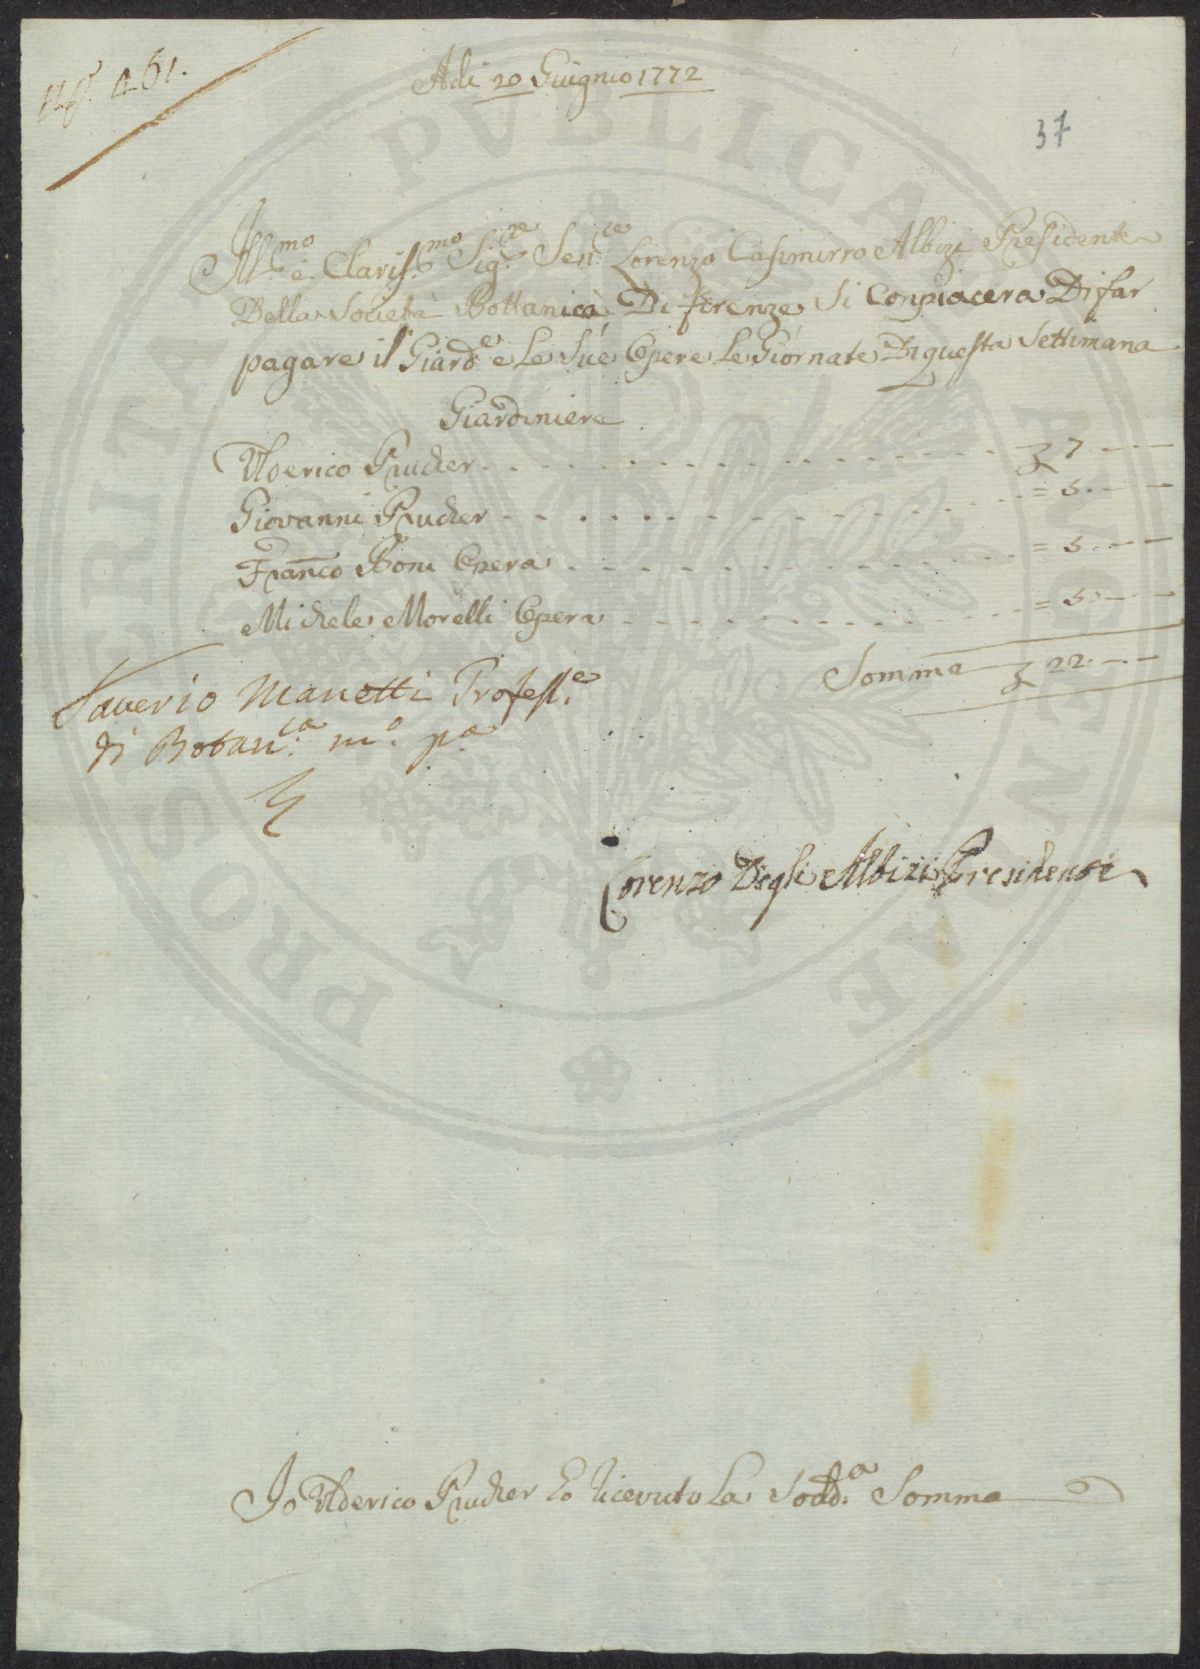 N.° 461.
Adi 20 Giugnio 1772
37
Ill.mo e Claris.mo Sig.re Sen.re Lorenzo Casimirro Albizi Presidente
Della Società Bottanica Di firenze Si Conpiacera Di far
pagare il Giard.e e Le Sue Opere Le Giornate Di questa Settimana
Giardiniere
Ulderico Prucher £ 7
Giovanni Prucher = 5
Franco Boni Opera = 5
Michele Morelli Opera = 5
Somma £ 22
Saverio Manetti Profess.e
di Botan.ca m.o p.a
Lorenzo Degli Albizi Presidente
Io Ulderico Prucher ho ricevuto La Sodd.a Somma
PROSPERITAS PVBLICA AVGENDAE